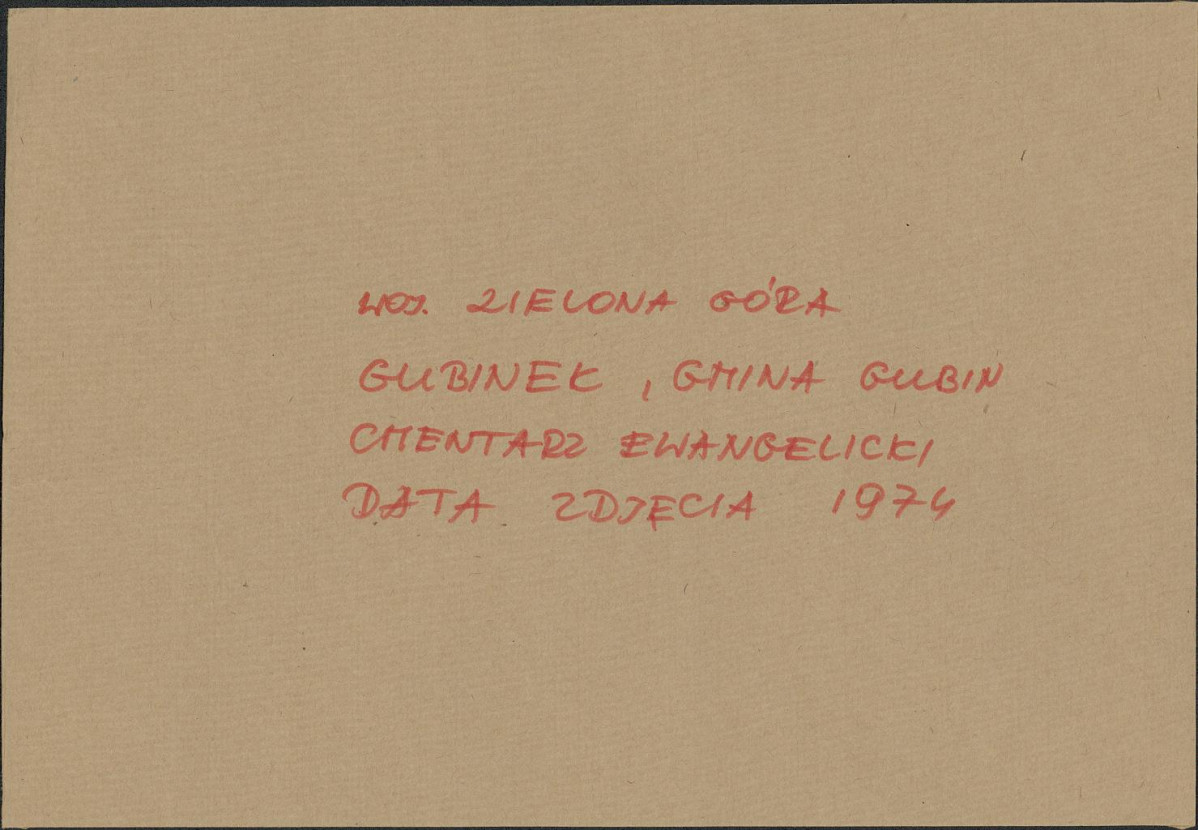 WOJ. ZIELONA GÓRA
GUBINEK, GMINA GUBIN
CMENTARZ EWANGELICKI
DATA ZDJĘCIA 1974